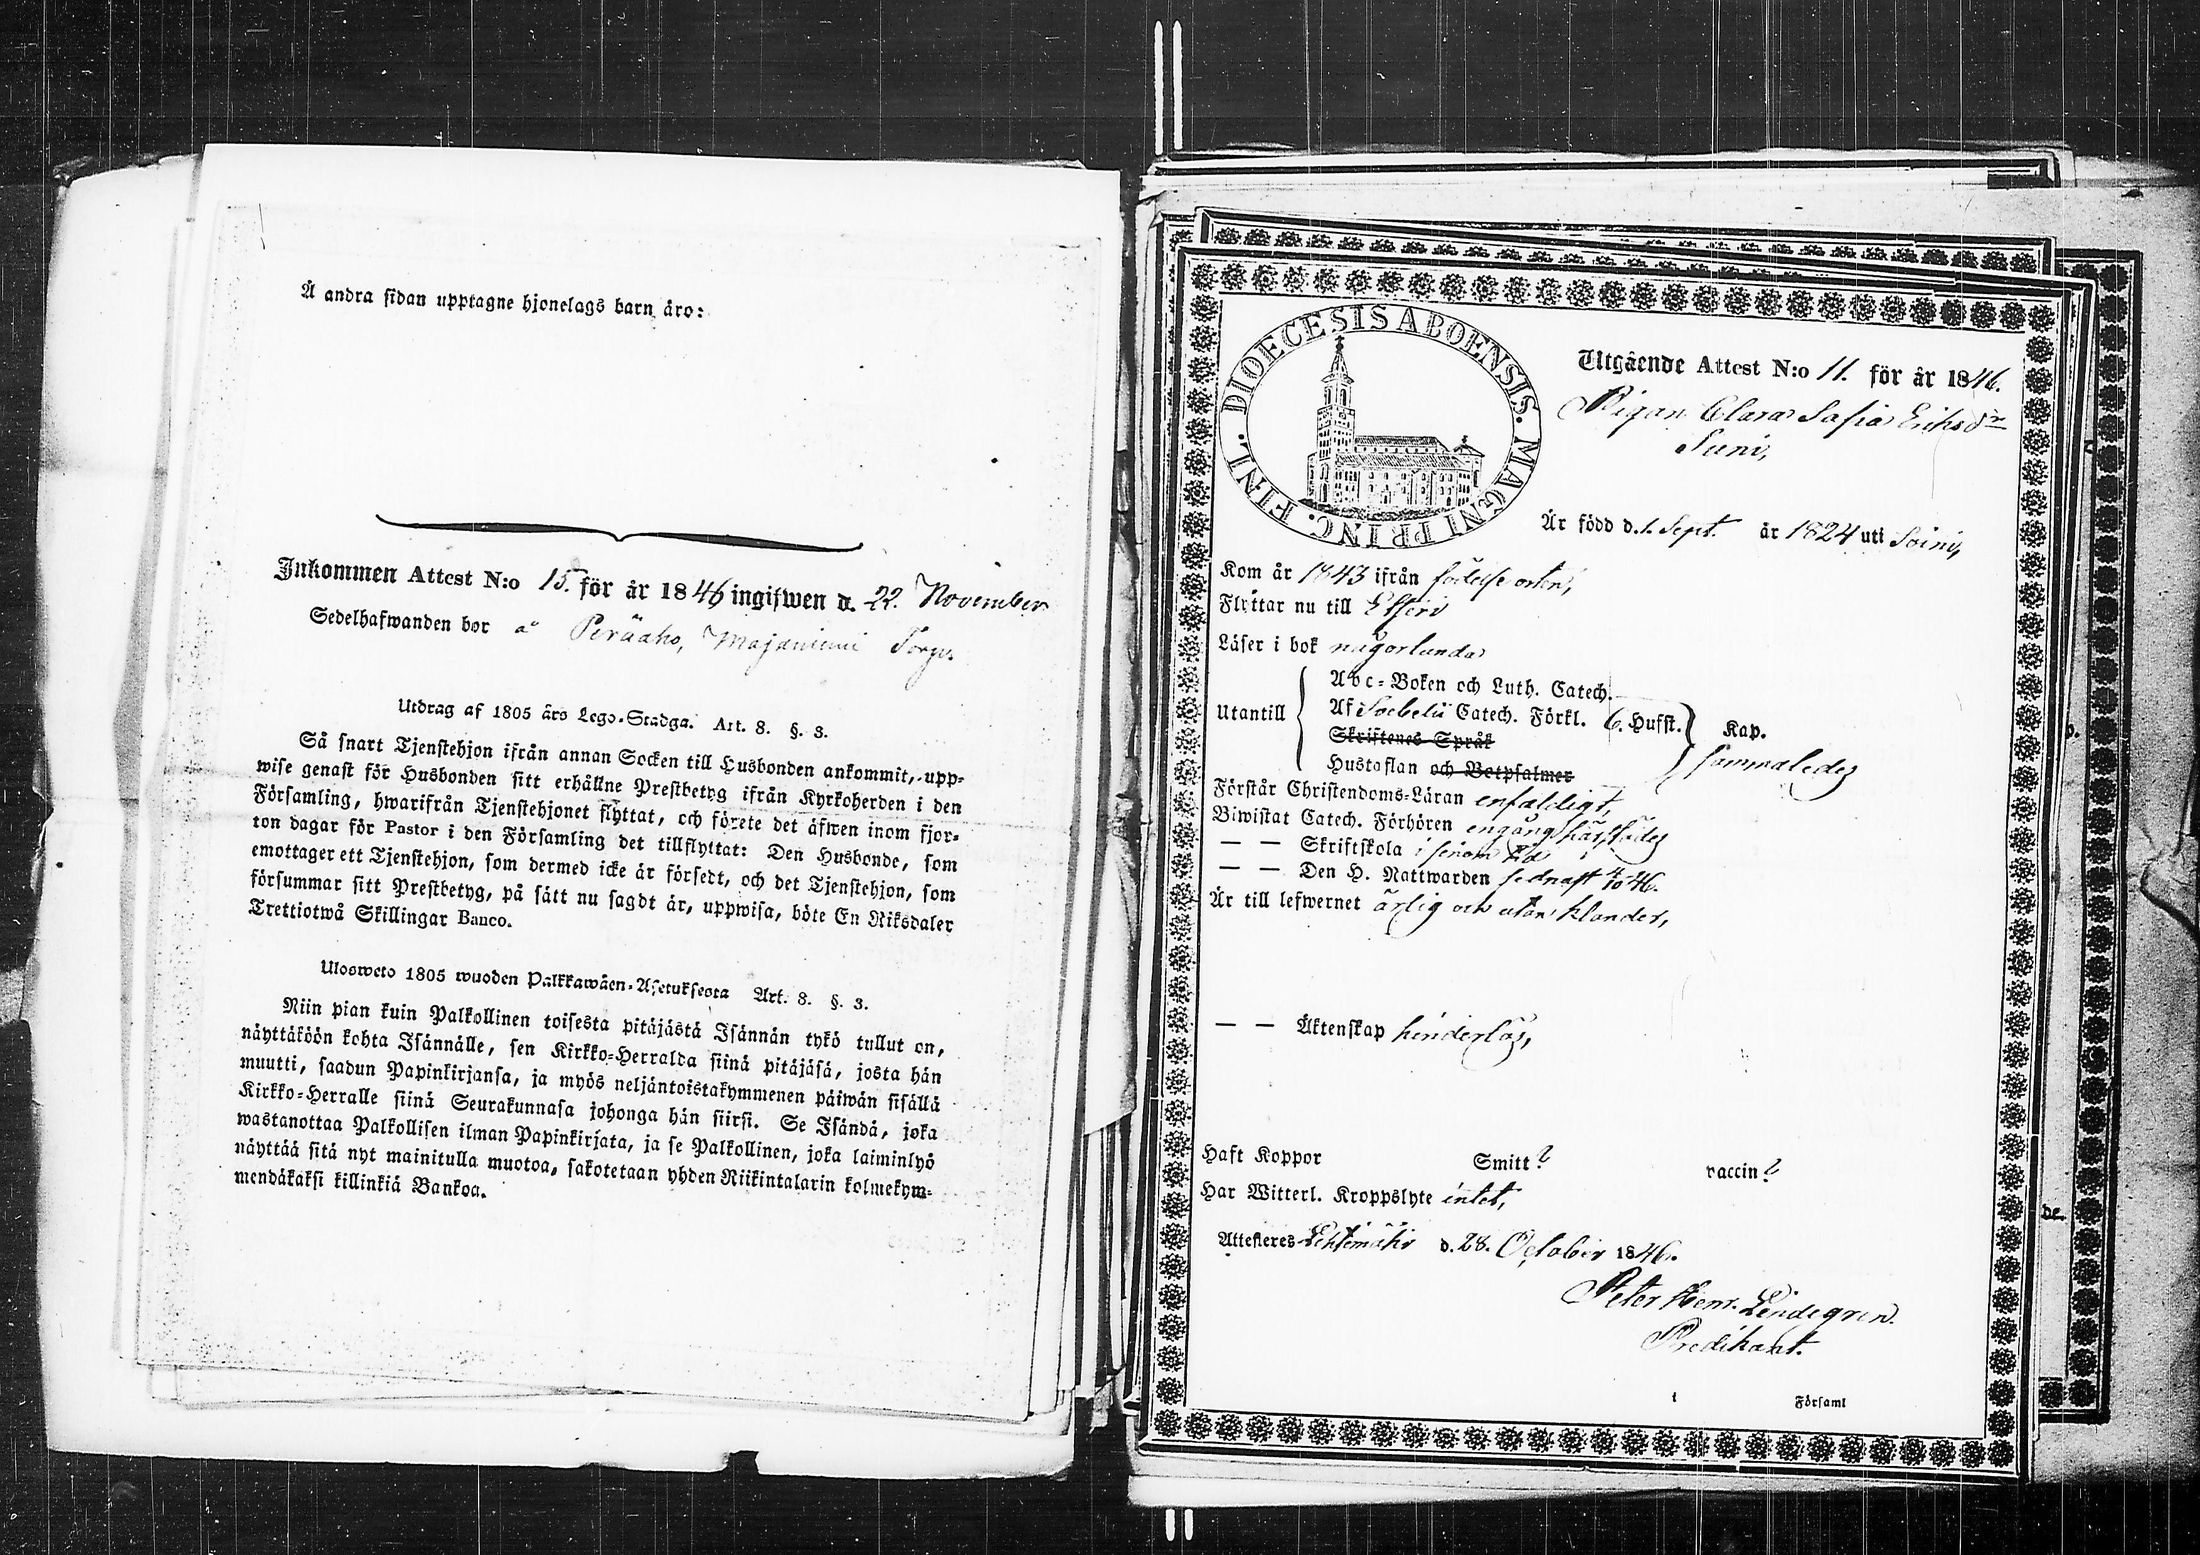 Å andra sidan upptagne hjonelags barn äro:
Inkommen Attest N:o 15. för år 1846 ingifwen d. 22. November
Sedelhafwanden bor å Peräaho, Majaniemi Torp.
Utdrag af 1805 års Lego-Stadga. Art. 8. §. 3.
Så snart Tjenstehjon ifrån annan Socken till Husbonden ankommit, upp-
wise genast för Husbonden sitt erhållne Prestbetyg ifrån Kyrkoherden i den
Församling, hwarifrån Tjenstehjonet flyttat, och förete det äfwen inom fjor-
ton dagar för Pastor i den Församling det tillflyttat: Den Husbonde, som
emottager ett Tjenstehjon, som dermed icke är försedt, och det Tjenstehjon, som
försummar sitt Prestbetyg, på sätt nu sagdt är, uppwisa, böte En Riksdaler
Trettiotwå Skillingar Banco.
Uloosweto 1805 wuoden Palkkawäen-Asetuksesta Art. 8. §. 3.
Niin pian kuin Palkollinen toisesta pitäjästä Isännän tykö tullut on,
näyttäköön kohta Isännälle, sen Kirkko-Herralda siinä pitäjäsä, josta hän
muutti, saadun Papinkirjansa, ja myös neljäntoistakymmenen päiwän sisällä
Kirkko-Herralle siinä Seurakunnasa johonga hän siirsi. Se Isändä, joka
wastanottaa Palkollisen ilman Papinkirjata, ja se Palkollinen, joka laiminlyö
näyttää sitä nyt mainitulla muotoa, sakotetaan yhden Riikintalarin kolmekym-
mendäkaksi killinkiä Bankoa.
DIOECESIS ABOENSIS. MAGNI PRINC. FINL.
Utgående Attest N:o 11. för år 1846.
Pigan Clara Safia Eriksdr
Suni,
Är född d. 1. Sept. år 1824 uti Soini,
Kom år 1843 ifrån födelse orten,
Flyttar nu till Etseri
Läser i bok någorlunda
Utantill
Abc-Boken och Luth. Catech.
Af Svebelii Catech. Förkl. 6. Hufst. Kap.
Skriftenes Språk
Hustaflan och Botpsalmer
sammaledes
Förstår Christendoms-Läran enfaldigt,
Biwistat Catech. Förhören engång härstädes
— — Skriftskola i sinom tid
— — Den H. Nattwarden sednast 4/10 46.
Är till lefwernet ärlig och utan klander,
— — Äktenskap hinderlös,
Haft Koppor Smitt? vaccin?
Har Witterl. Kroppslyte intet,
Attesteres Lehtimäki d. 28. October 1846.
Peter Henr. Lindegren.
Predikant.
i Församl